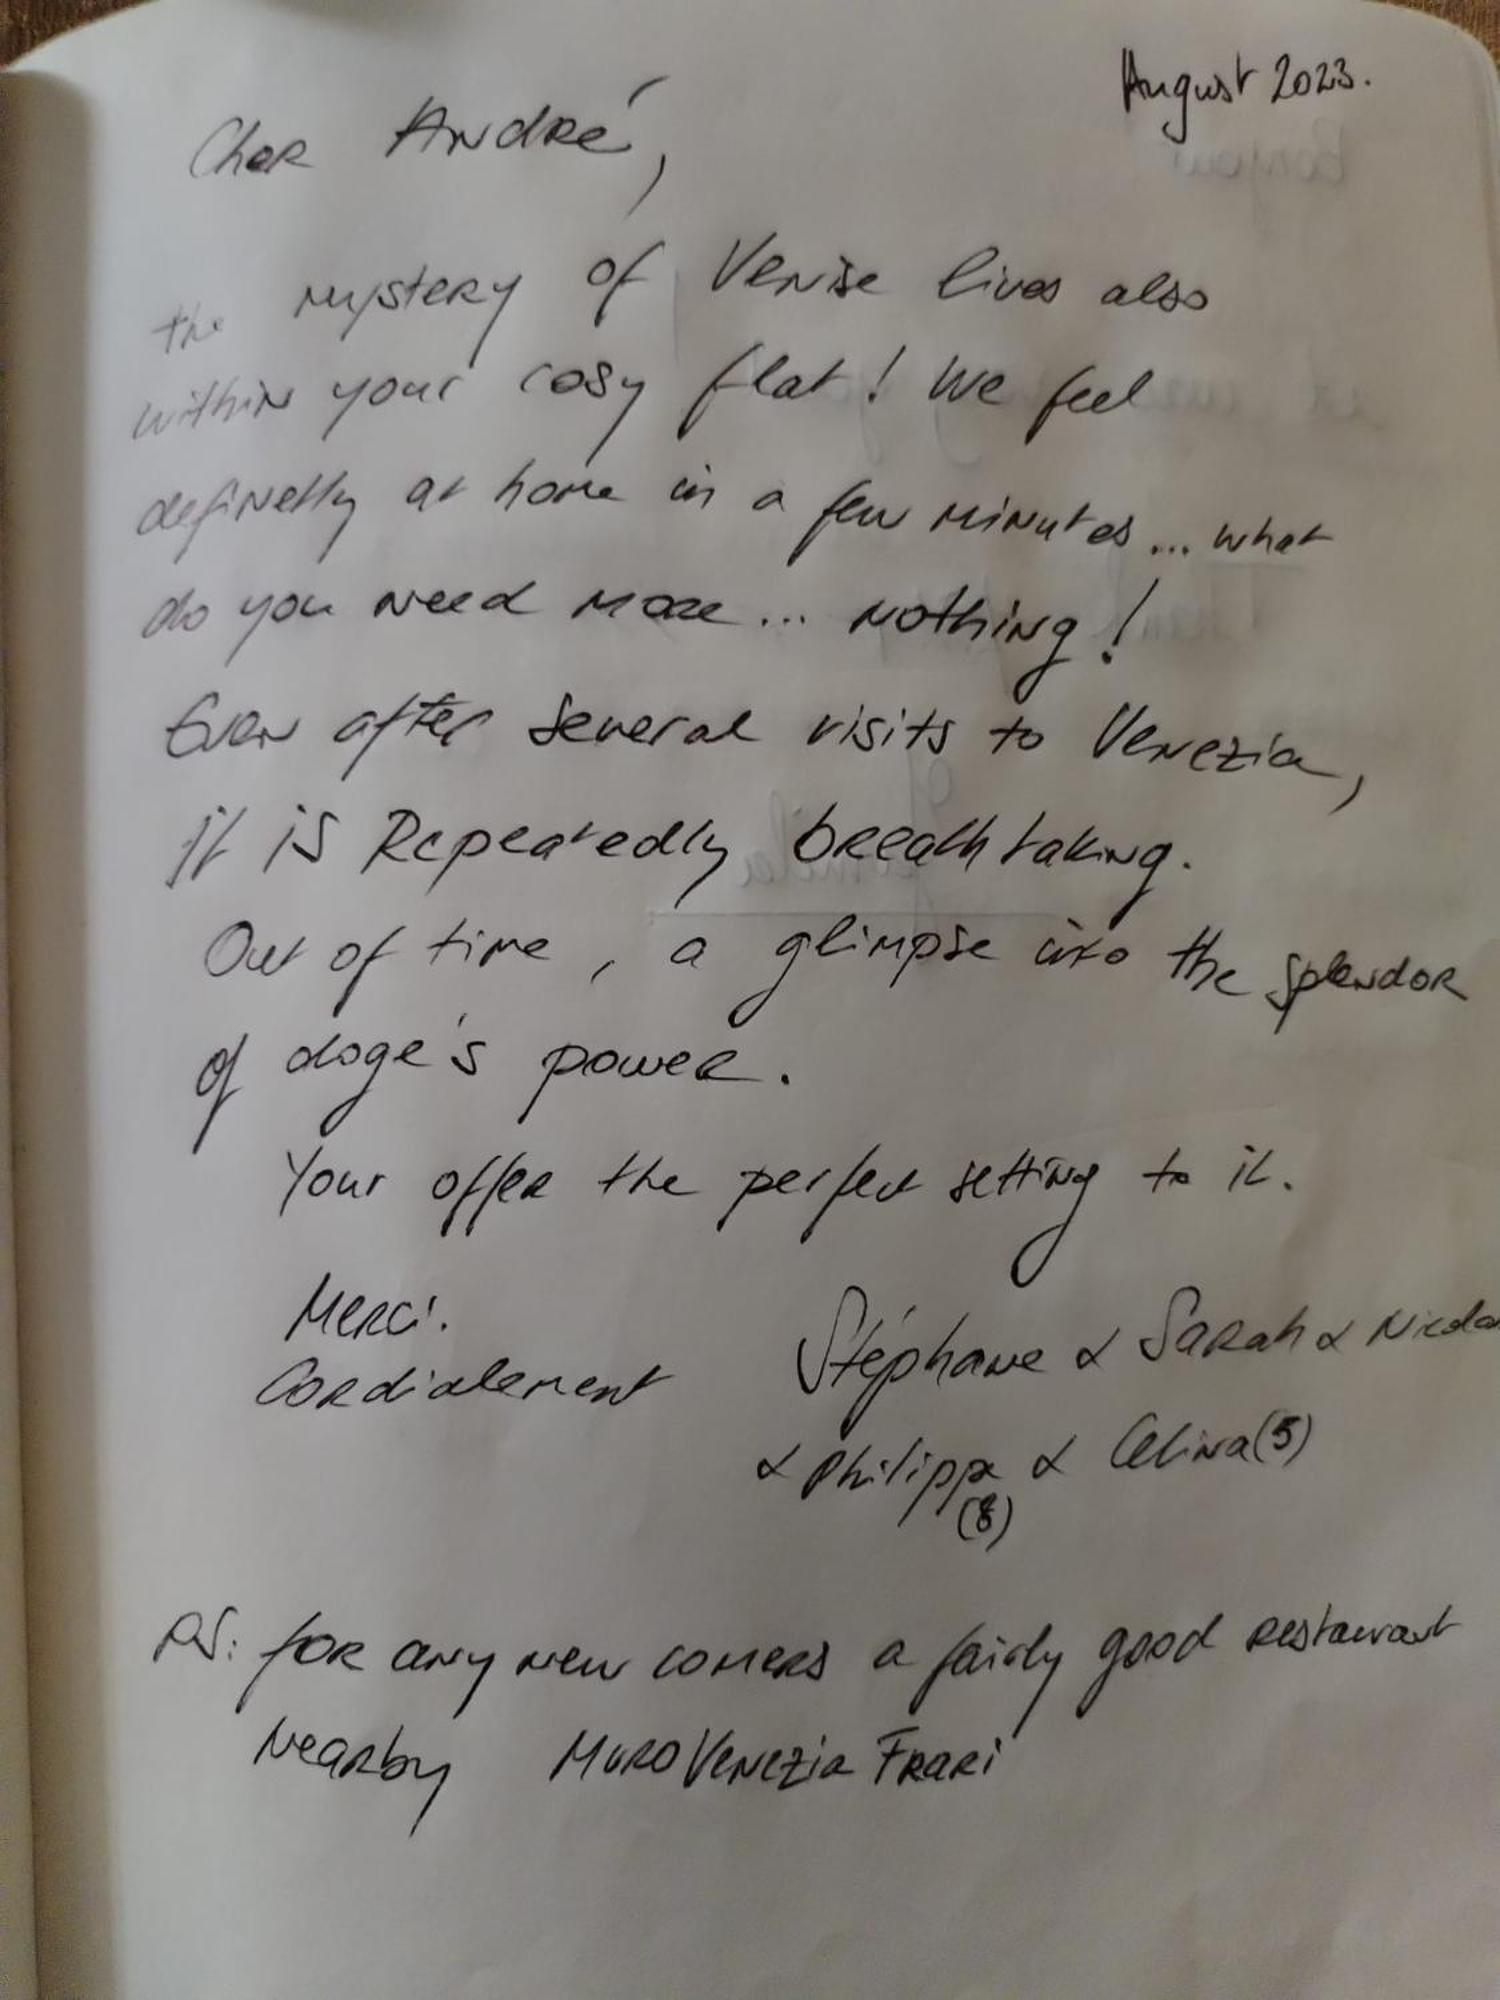 August 2023.
Cher André,
the mystery of Venise lives also
within your cosy flat! We feel
definetly at home in a few minutes... what
do you need more... nothing!
Even after several visits to Venezia,
it is Repeatedly breathtaking.
Out of time, a glimpse into the splendor
of doge's power.
Your offer the perfect setting to it.
Merci.
Stéphane & Sarah &
Cordialement
& Philippa & Celina (5)
(8)
PS: for any new comers a fairly good restaurant
Nearby Muro Venezia Frari